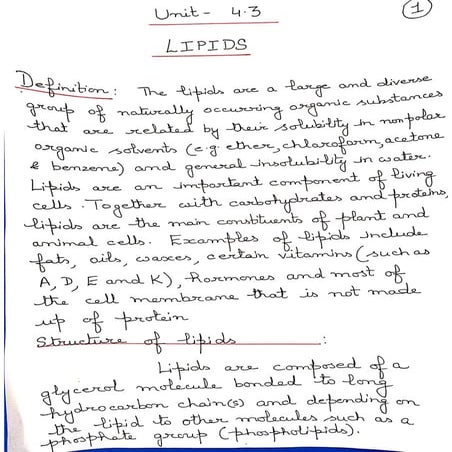 Unit - 4.3
1
LIPIDS
Definition: The lipids are a large and diverse
group of naturally occurring organic substances
that are related by their solubility in nonpolar
organic solvents (e.g. ether, chloroform, acetone
& benzene) and general insolubility in water.
Lipids are an important component of living
cells. Together with carbohydrates and proteins,
lipids are the main constituents of plant and
animal cells. Examples of lipids include
fats, oils, waxes, certain vitamins (such as
A, D, E and K), Hormones and most of
the cell membrane that is not made
up of protein
Structure of lipids :
Lipids are composed of a
glycerol molecule bonded to long
hydrocarbon chain(s) and depending on
the lipid to other molecules such as a
phosphate group (phospholipids).